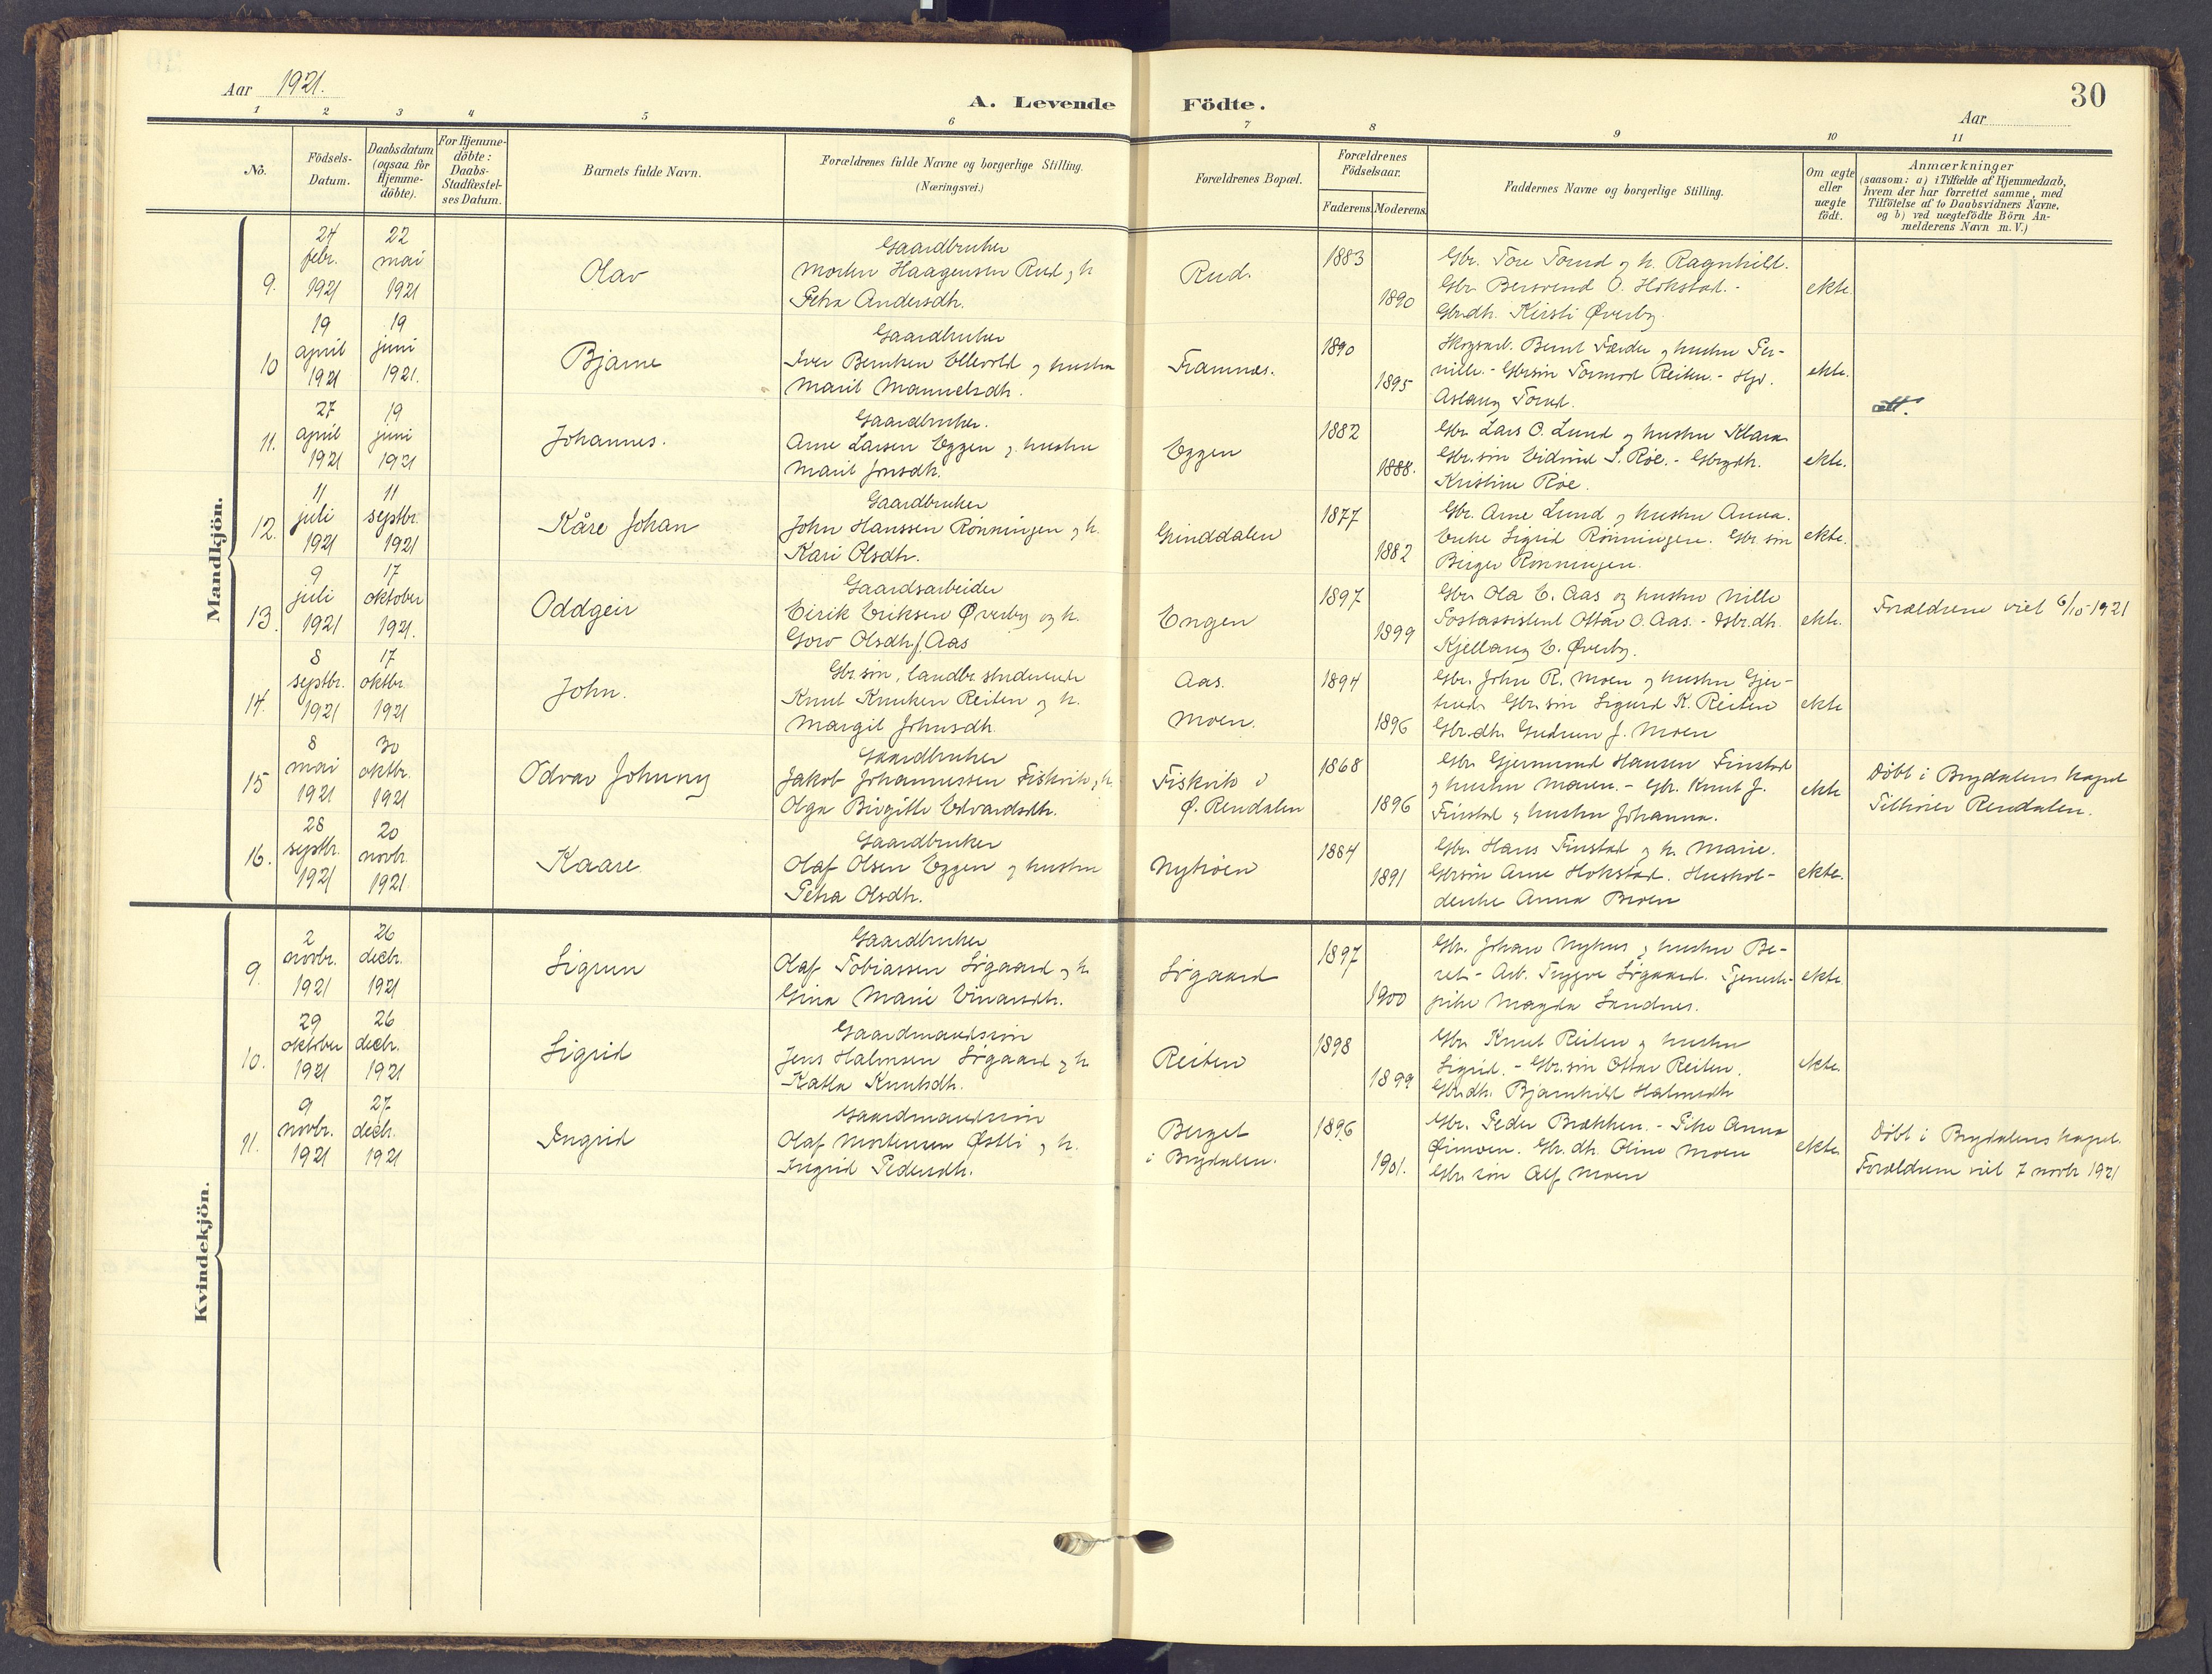 Aar 1921.
A. Levende Födte.
30
Aar
1 2 3 4 5 6 7 8 9 10 11
No.
Födsels-
Datum.
Daabsdatum
(ogsaa for
Hjemme-
döbte).
For Hjemme-
döbte:
Daabs-
Stadfæstel-
ses Datum.
Barnets fulde Navn.
Forældrenes fulde Navne og borgerlige Stilling.
(Næringsvei.)
Forældrenes Bopæl.
Forældrenes
Födselsaar.
Faderens. Moderens.
Faddernes Navne og borgerlige Stilling.
Om ægte
eller
uægte
födt.
Anmærkninger
(saasom: a) i Tilfælde af Hjemmedaab,
hvem der har forrettet samme, med
Tilföielse af to Daabsvidners Navne.
og b) ved uægtefödte Börn An-
melderens Navn m. V.)
Mandkjön.
9.
24
febr.
1921
22
mai
1921
Olav
Gaardbruker
Morten Haagensen Rud og h
Petra Andersdh.
Rud.
1883
1890
Gbr. Tore Torud og h. Ragnhild.
Gbr. Bersvend O. Hokstad. -
Gbrdh. Kirsti Øverby.
ekte.
10
19
april
1921
19
juni
1921.
Bjarne
Gaardbruker
Iver Bentsen Ellevold og hustru
Marit Manuelsdh.
Framnes.
1890
1895
Skogsarb. Bernt Færder og hustru Per-
nille. - Gbrsøn Tormod Reiten. -
Aslaug Torud.
ekte.
att.
11.
27
april
1921
19
juni
1921
Johannes.
Gaardbruker.
Arne Larsen Eggen og hustru
Marit Jonsdh.
Eggen
1882
1888.
Gbr. Lars O. Lund og hustru Klara
Gbr.søn Eidvind S. Røe. - Gbrgdh.
Kristine Røe.
ekte.
12.
11
juli
1921
11
septbr.
1921
Kåre Johan
Gaardbruker
John Hanssen Rønningen og h.
Kari Olsdh.
Grinddalen
1877
1882
Gbr. Arne Lund og hustru Anna.
Enke Sigrid Rønningen. Gbr. søn
Birger Rønningen.
ekte.
13.
9
juli
1921
17
oktober
1921.
Oddgeir
Gaardsarbeider
Eirik Eriksen Øverby og h.
Goro Olsdh. f. Aas
Engen
1897
1899
Gbr. Ola E. Aas og hustru Nille
Postassistent Ottar O. Aas. - Gbr.dh.
Kjellaug E. Øverby.
ekte.
Forældrene viet 6/10-1921
14.
8
septbr.
1921
17
oktbr.
1921
John.
Gbr.søn, landbr. studerende
Knut Knutsen Reiten og h.
Margit Johnsdh.
Aas.
Moen.
1894
1896
Gbr. John R. Moen og hustru Gjer-
trud. Gbr.søn Sigurd K. Reiten
Gbr.dh. Gudrun J. Moen
ekte
15
8
mai
1921
30
oktbr.
1921
Odvar Johnny
Gaardbruker
Jakob Johannessen Fiskvik og h.
Olga Birgitte Edvardsdh.
Fiskvik i
Ø. Rendalen
1868
1896
Gbr. Gjermund Hansen Finstad
og hustru Maren. - Gbr. Knut J.
Finstad og hustru Johanna.
ekte
Døbt i Brydalens kapel
Tilhører Rendalen.
16.
28
septbr.
1921
20
novbr.
1921
Kaare
Gaardbruker
Olaf Olsen Eggen og hustru
Petra Olsdh.
Nytrøen
1884
1891
Gbr. Hans Finstad og h. Marie.
Gbrsøn Arne Hokstad. Hushol-
derske Anna Broen
ekte.
Kvindekjön.
9.
2
novbr.
1921
26
decbr.
1921
Sigrun
Gaardbruker
Olaf Tobiassen Søgaard og h.
Gina Marie Einarsdh.
Søgaard
1897
1900
Gbr. Johan Nyhus og hustru Be-
ret. - Arb. Trygve Søgaard. Tjeneste-
pike Magda Sandnes.
ekte
10.
29
oktober
1921
26
decbr.
1921
Sigrid
Gaardmandssøn
Jens Halvorsen Søgaard og h
Katla Knutsdh.
Reiten
1898
1899
Gbr. Knut Reiten og hustru
Sigrid. - Gbr.søn Ottar Reiten.
Gbrdh. Bjarnhild Halvorsdh
ekte.
11.
9
novbr.
1921
27
decbr.
1921
Ingrid
Gaardmandssøn
Olaf Mortensen Østli og h.
Ingrid Pedersdh.
Berget
i Brydalen.
1896
1901.
Gbr. Peder Brækken. - Pike Anna
Øimoen. Gbr.dh. Oline Moen
Gbr søn Alf Moen
ekte.
Døbt i Brydalens kapel.
Forældrene viet 7 novbr 1921